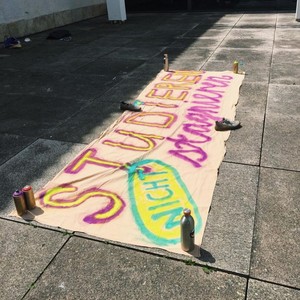 STUDIEREN
NICHT stagnieren